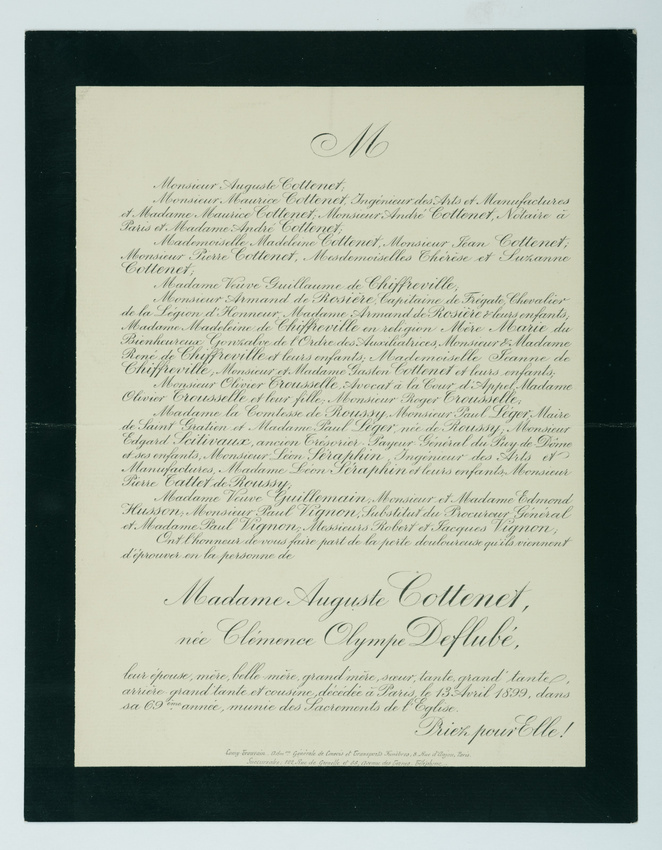 M
Monsieur Auguste Cottenet,
Monsieur Maurice Cottenet, Ingénieur des Arts et Manufactures
et Madame Maurice Cottenet, Monsieur André Cottenet, Notaire à
Paris et Madame André Cottenet,
Mademoiselle Madeleine Cottenet, Monsieur Jean Cottenet,
Monsieur Pierre Cottenet, Mesdemoiselles Thérèse et Suzanne
Cottenet,
Madame Veuve Guillaume de Chiffreville,
Monsieur Armand de Rosière, Capitaine de Frégate, Chevalier
de la Légion d'Honneur, Madame Armand de Rosière & leurs enfants,
Madame Madeleine de Chiffreville en religion Mère Marie du
Bienheureux Gonzalve de l'Ordre des Auxiliatrices, Monsieur & Madame
René de Chiffreville et leurs enfants; Mademoiselle Jeanne de
Chiffreville, Monsieur et Madame Gaston Cottenet et leurs enfants,
Monsieur Olivier Trousselle, Avocat à la Cour d'Appel, Madame
Olivier Trousselle et leur fille, Monsieur Roger Trousselle,
Madame la Comtesse de Roussy, Monsieur Paul Léger, Maire
de Saint Gratien et Madame Paul Léger, née de Roussy, Monsieur
Edgard Scitivaux, ancien Trésorier-Payeur Général du Puy de Dôme
et ses enfants, Monsieur Léon Séraphin, Ingénieur des Arts et
Manufactures, Madame Léon Séraphin et leurs enfants, Monsieur
Pierre Callet de Roussy,
Madame Veuve Guillemain, Monsieur et Madame Edmond
Husson, Monsieur Paul Vignon, Substitut du Procureur Général
et Madame Paul Vignon, Messieurs Robert et Jacques Vignon,
Ont l'honneur de vous faire part de la perte douloureuse qu'ils viennent
d'éprouver en la personne de
Madame Auguste Cottenet,
née Clémence Olympe Deflubé,
leur épouse, mère, belle-mère, grand'mère, sœur, tante, grand'tante,
arrière-grand'tante et cousine, décédée à Paris, le 13 Avril 1899, dans
sa 69ème année, munie des Sacrements de l'Eglise.
Priez pour Elle!
Générale de Convois et Transports Funèbres, Paris
Succursale: